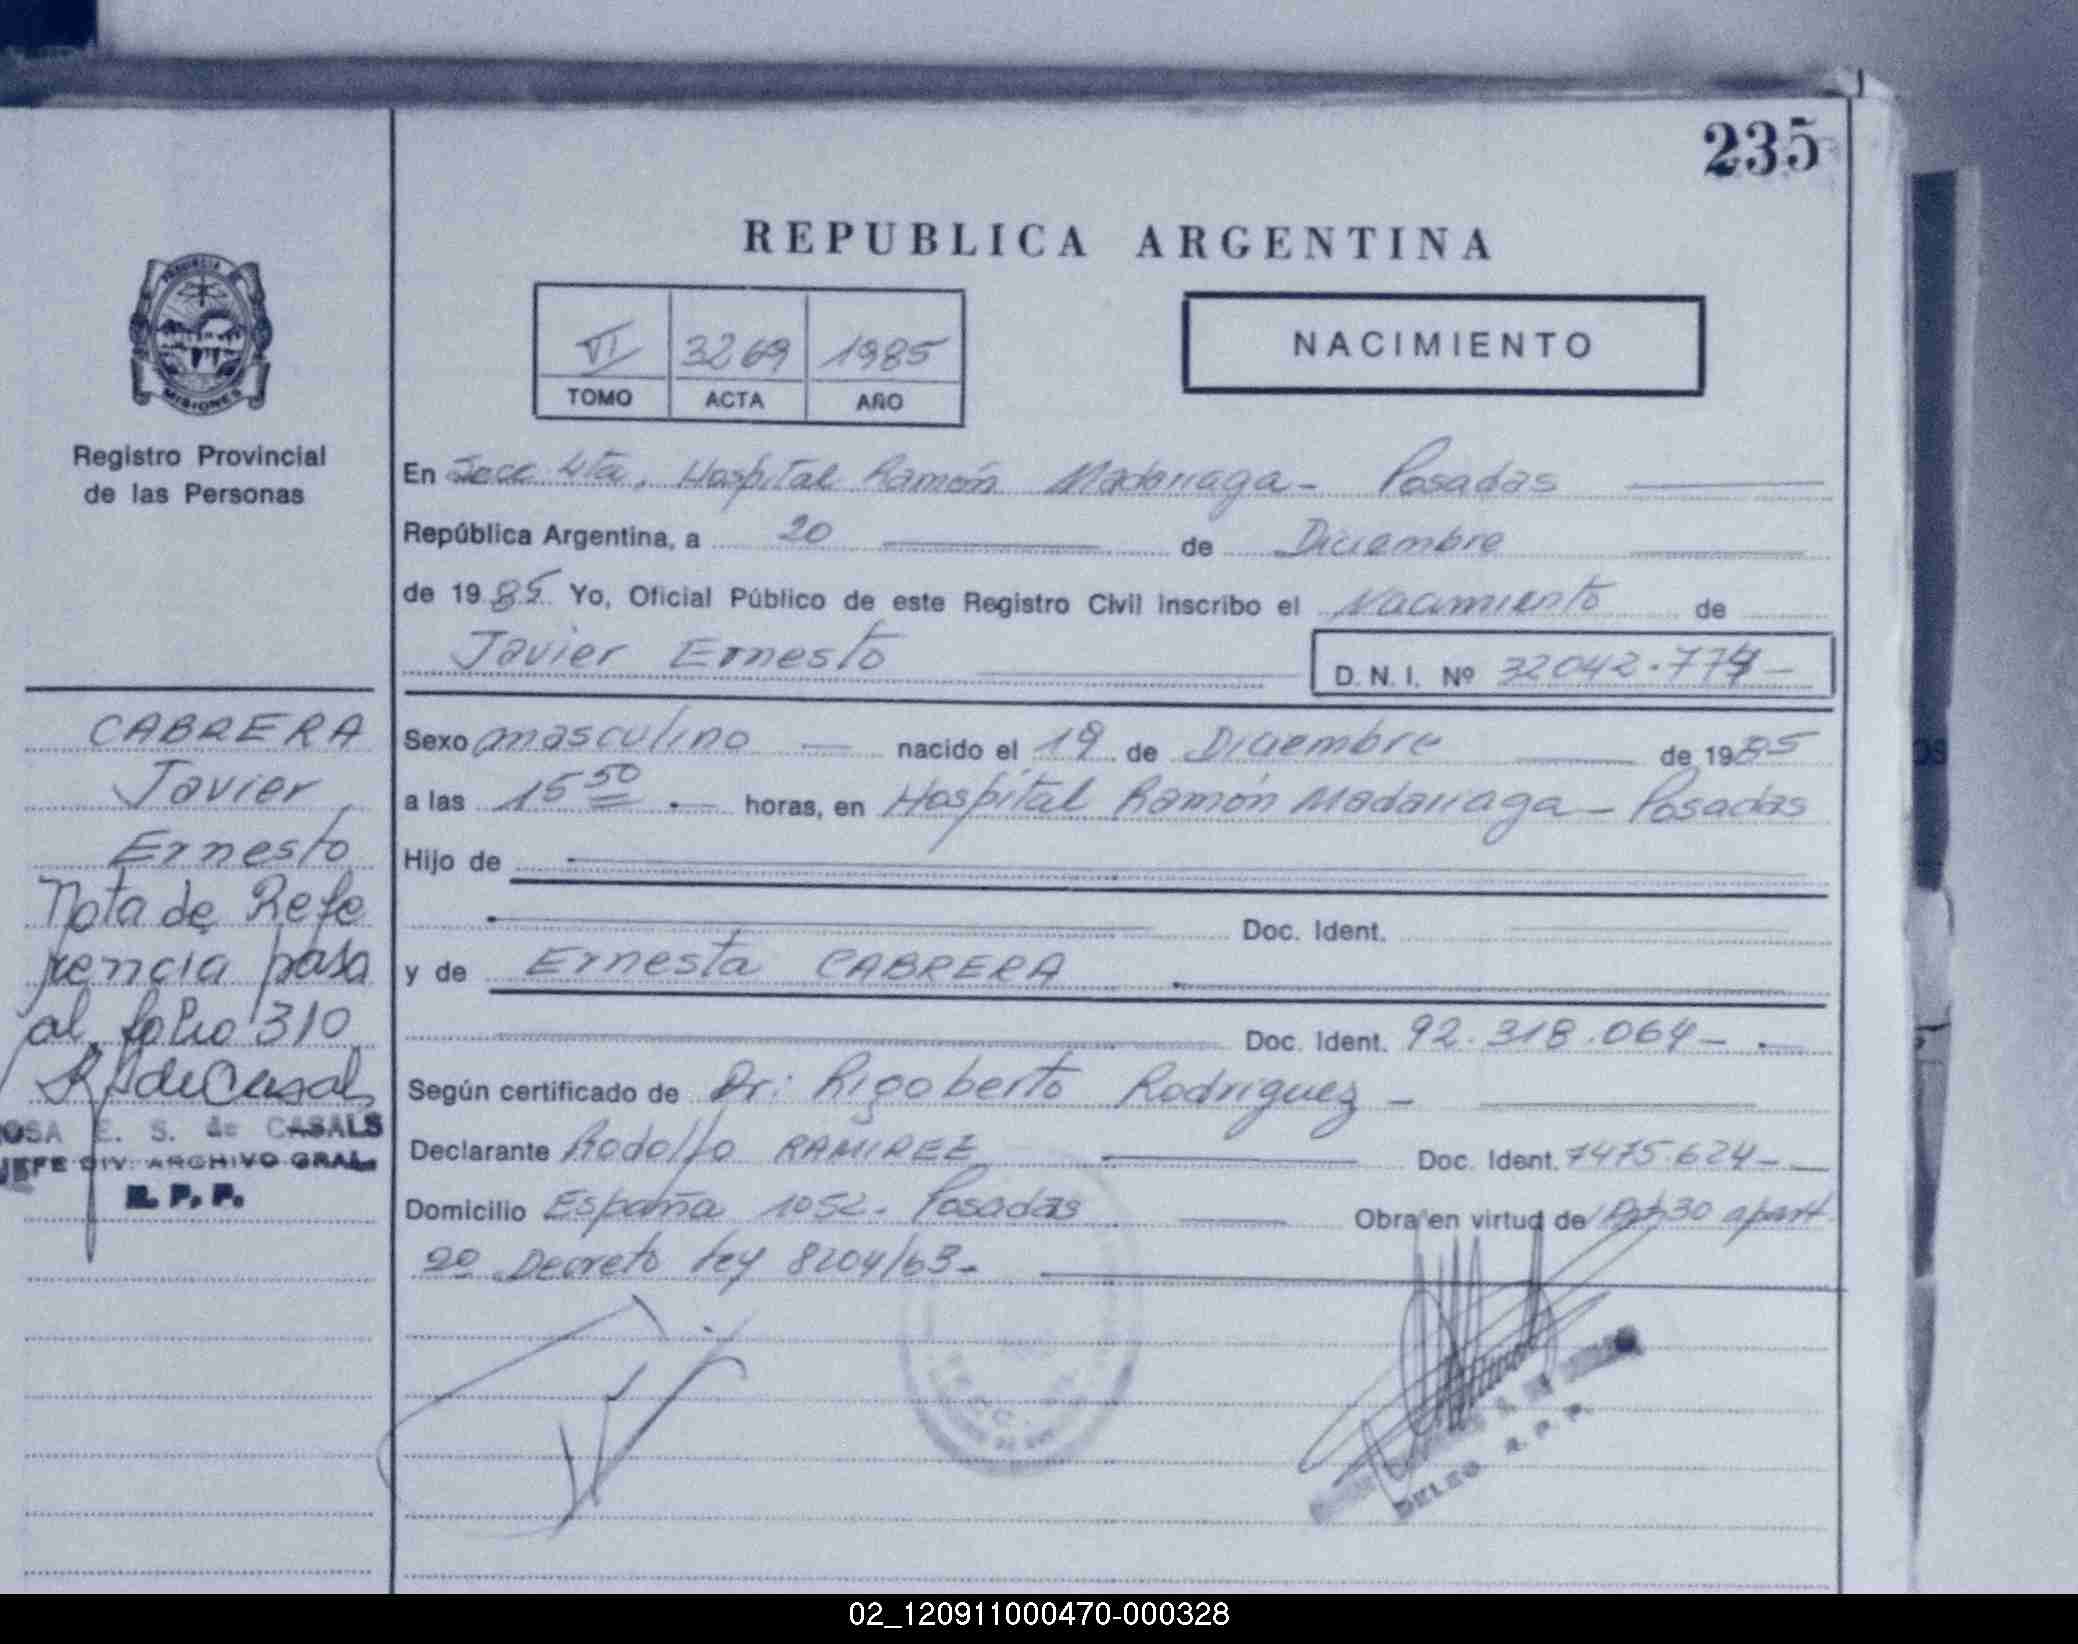 235
REPUBLICA ARGENTINA
PROVINCIA DE
MISIONES
VI 3269 1985
TOMO ACTA AÑO
NACIMIENTO
Registro Provincial
de las Personas
En Secc 4ta. Hospital Ramón Madariaga - Posadas
República Argentina, a 20 de Diciembre
de 1985 Yo, Oficial Público de este Registro Civil inscribo el Nacimiento de
Javier Ernesto
D. N. I. Nº 32042.774 -
CABRERA
Javier
Ernesto
Nota de Refe
rencia pasa
al folio 310
RSdeCasals
ROSA E. S. de CASALS
JEFE DIV. ARCHIVO GRAL.
R. P. P.
Sexo masculino nacido el 19 de Diciembre de 1985
a las 15 50 horas, en Hospital Ramón Madariaga - Posadas
Hijo de
Doc. Ident.
y de Ernesta CABRERA
Doc. Ident. 92.318.064 -
Según certificado de Dr: Rigoberto Rodriguez -
Declarante Rodolfo RAMIREZ Doc. Ident. 7475.624 -
Domicilio España 1052. Posadas Obra en virtud de 30 apart
2º Decreto ley 8204/63 -
DELEG. R. P. P.
02_120911000470-000328